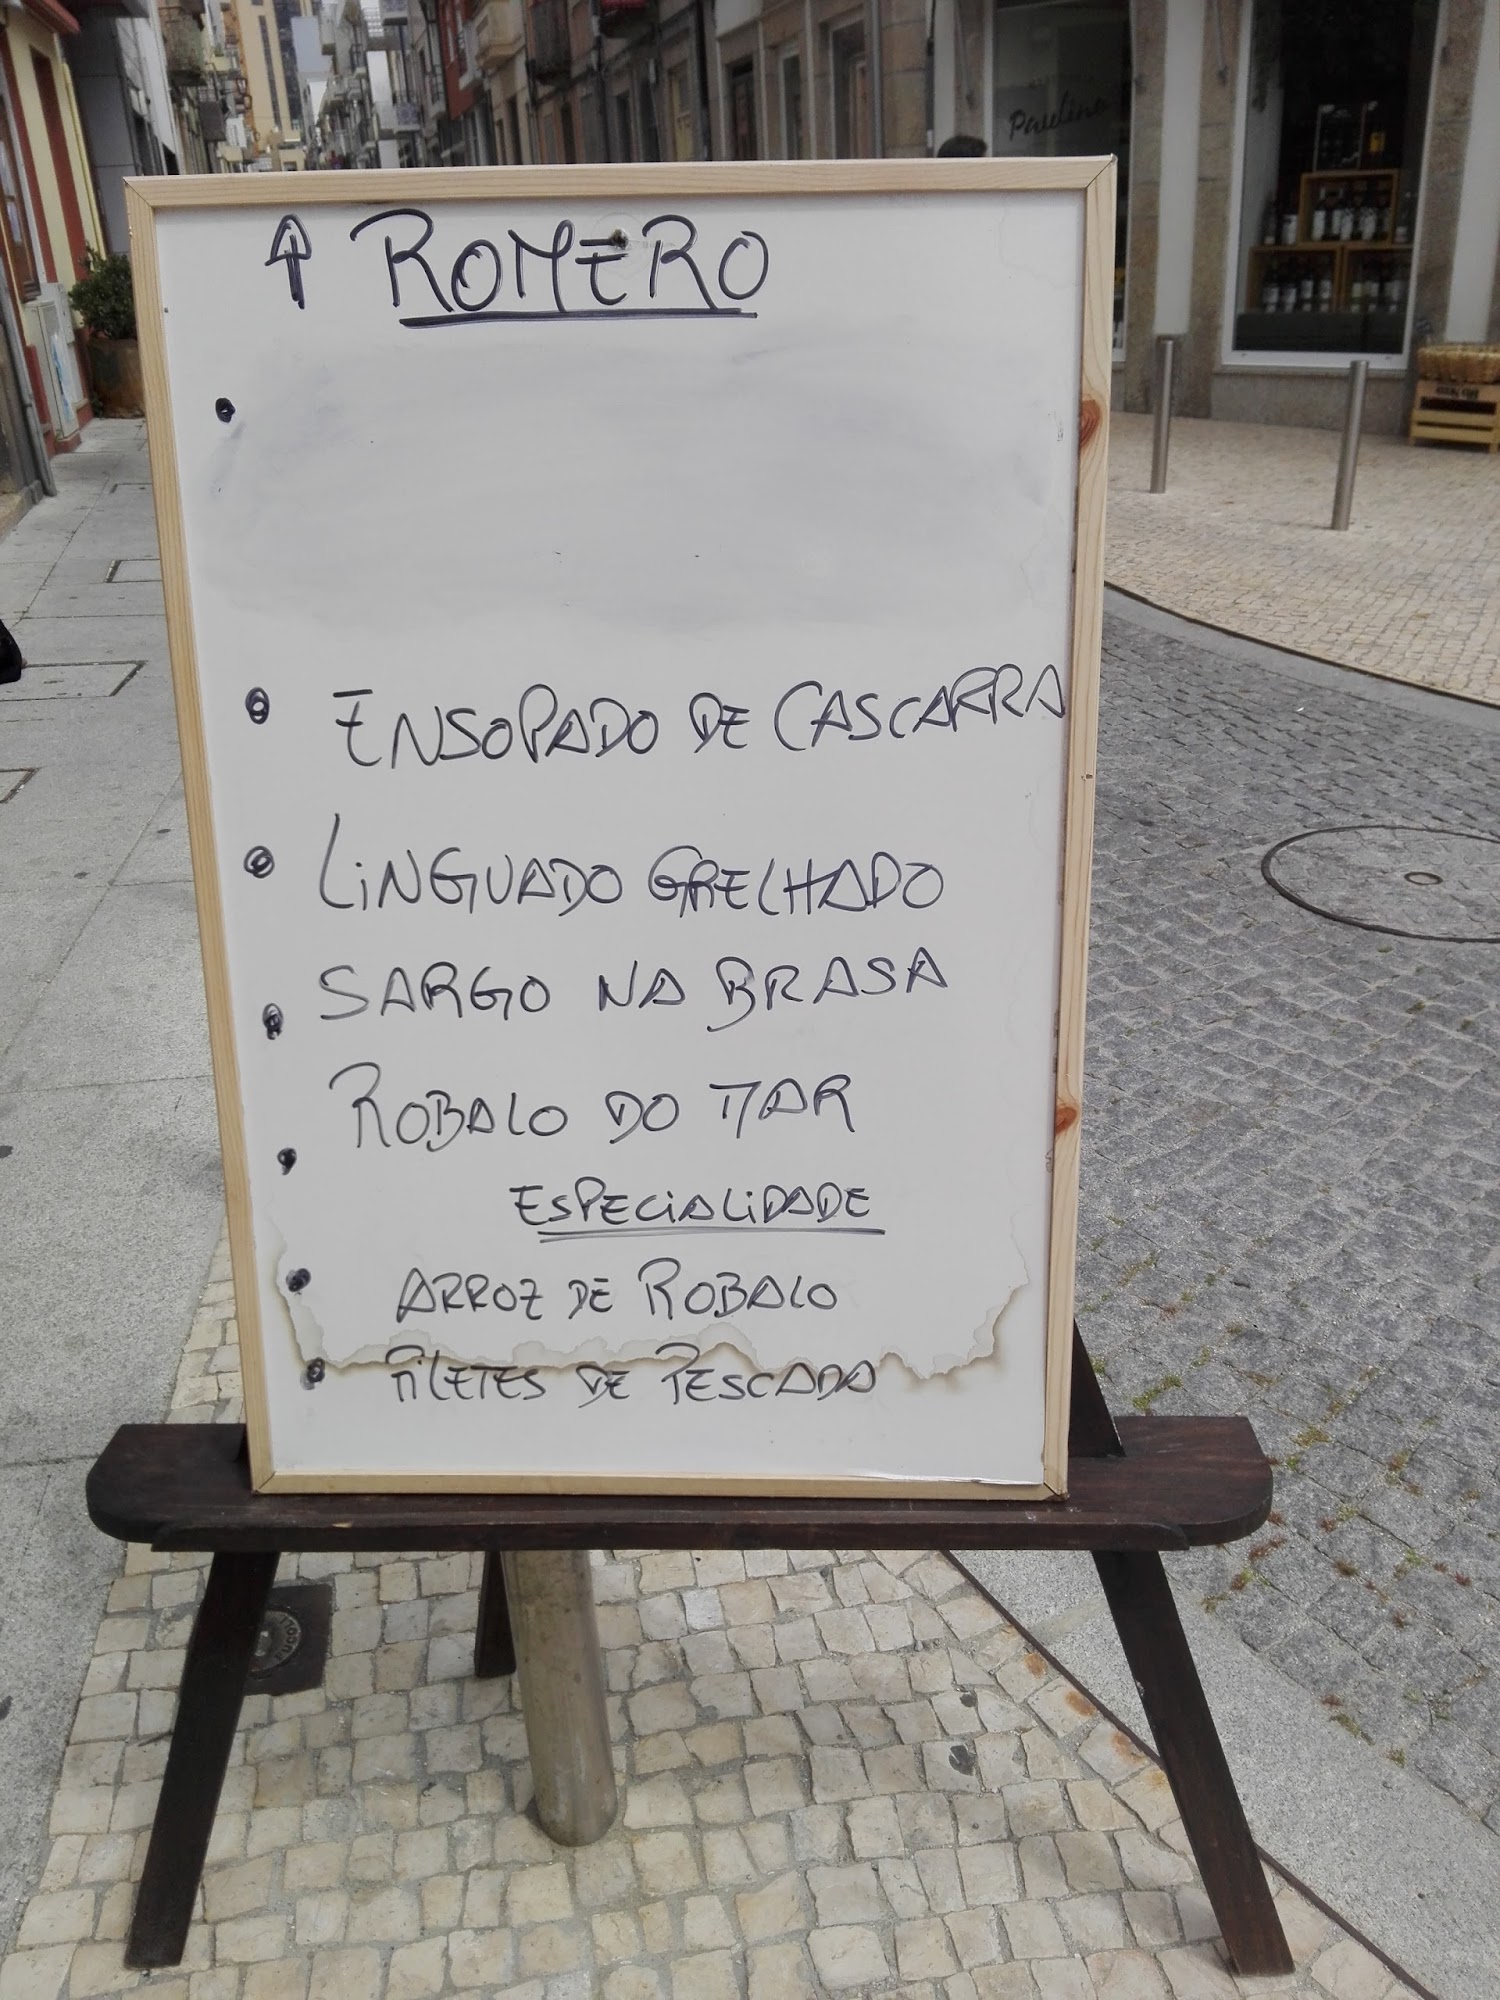 ↑ ROMERO
• ENSOPADO DE CASCARRA
• LINGUADO GRELHADO
• SARGO NA BRASA
• ROBALO DO MAR
ESPECIALIDADE
• ARROZ DE ROBALO
• FILETES DE PESCADA
Paulino